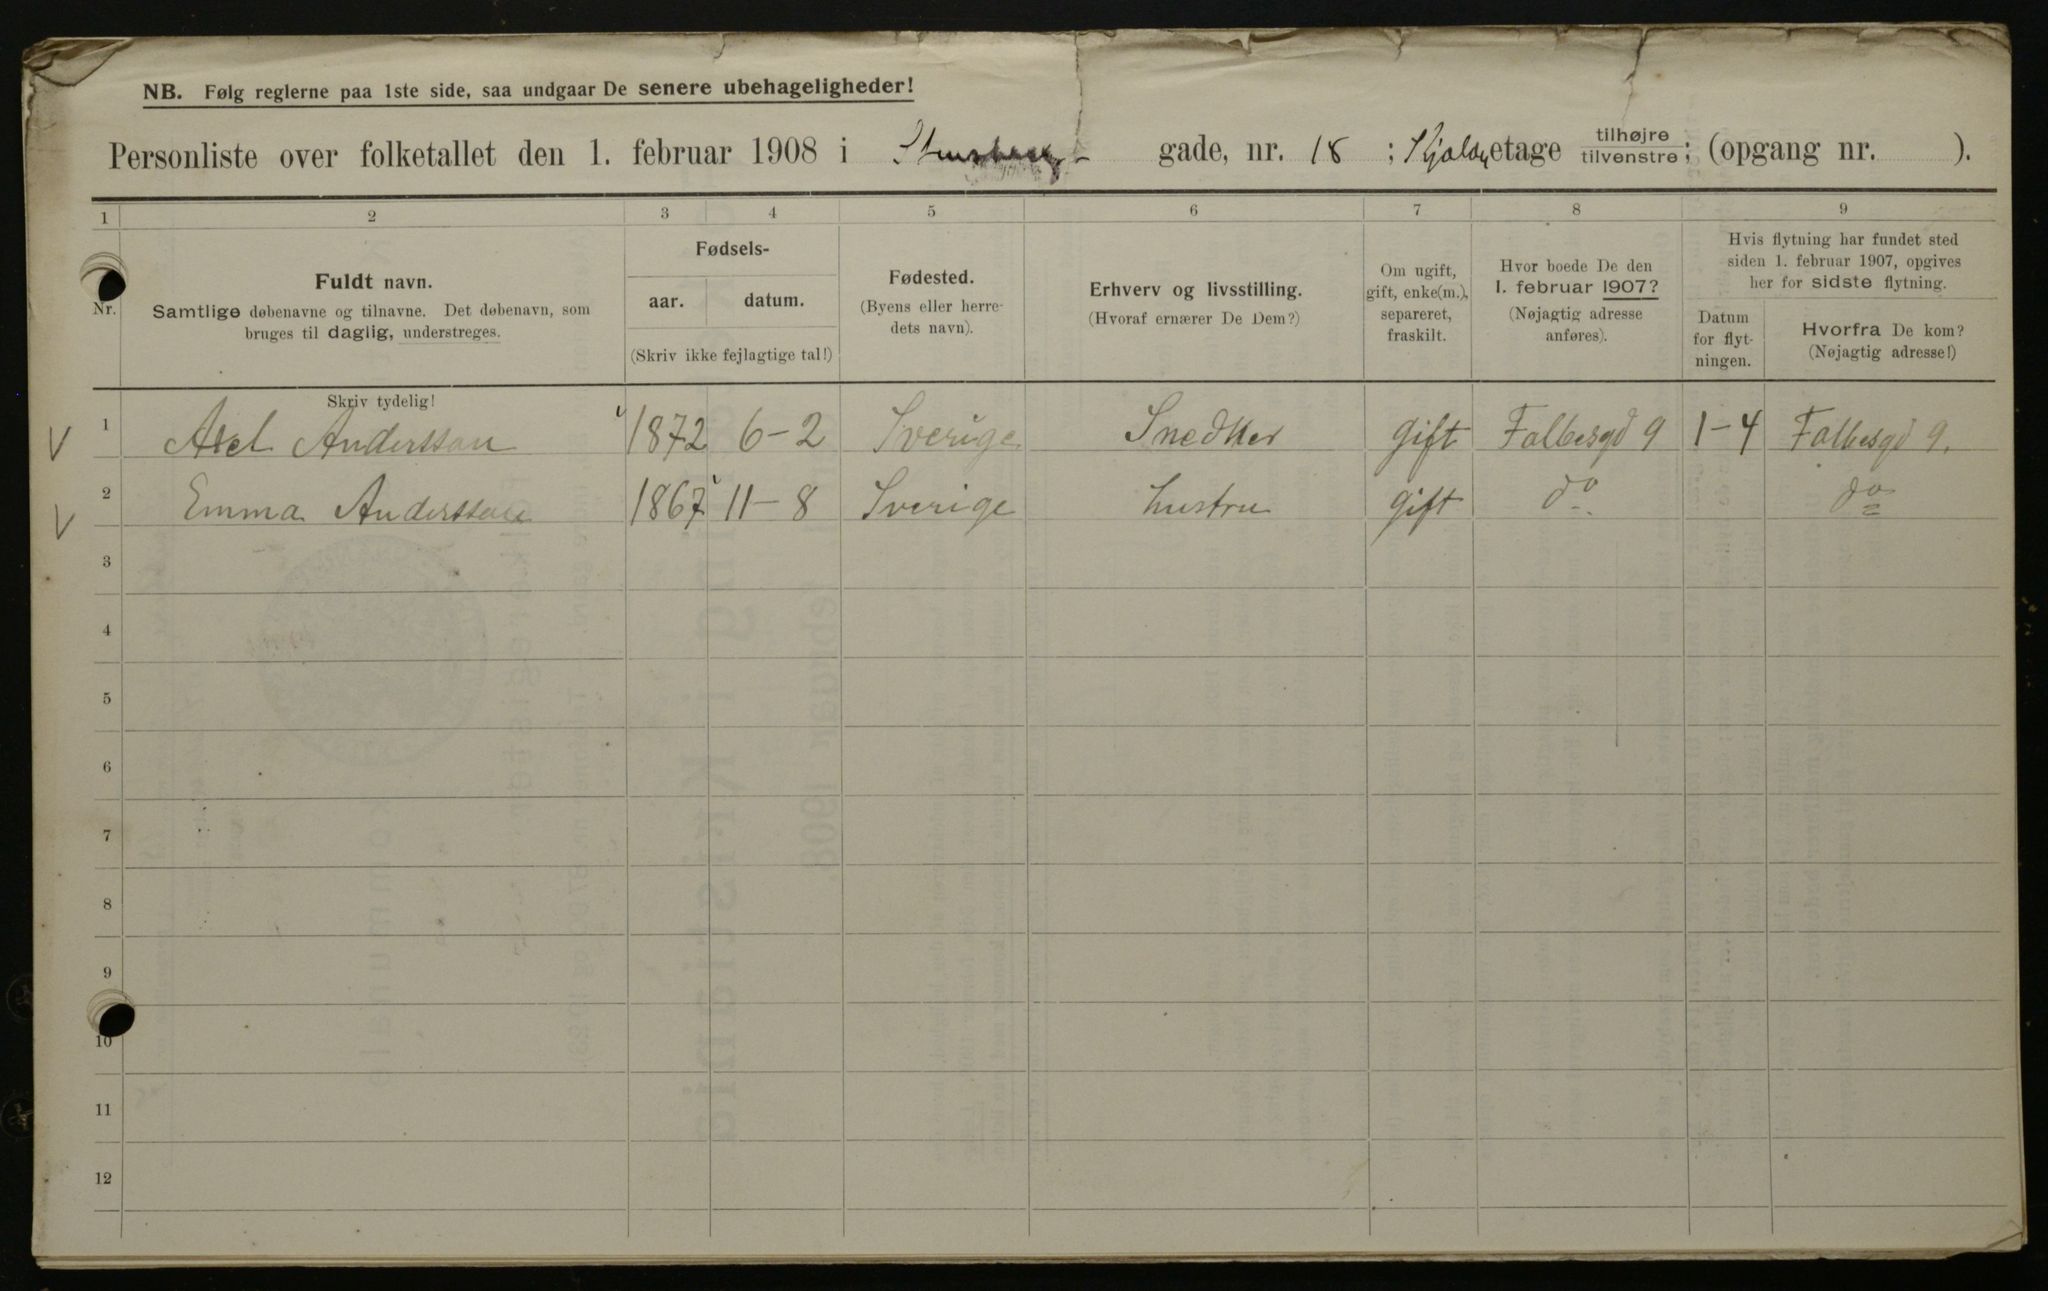 NB. Følg reglerne paa 1ste side, saa undgaar De senere ubehageligheder!
Personliste over folketallet den 1. februar 1908 i Stensberg- gade, nr. 18 ; Kjelder etage tilhøjre tilvenstre; (opgang nr. ).
1 2 3 4 5 6 7 8 9
Nr.
Fuldt navn.
Samtlige døbenavne og tilnavne. Det døbenavn, som
bruges til daglig, understreges.
Skriv tydelig!
Fødsels-
aar. datum.
(Skriv ikke fejlagtige tal!)
Fødested.
(Byens eller herre-
dets navn).
Erhverv og livsstilling.
(Hvoraf ernærer De Dem?)
Om ugift,
gift, enke(m.),
separeret,
fraskilt.
Hvor boede De den
1. februar 1907?
(Nøjagtig adresse
anføres).
Hvis flytning har fundet sted
siden 1. februar 1907, opgives
her for sidste flytning.
Datum
for flyt-
ningen.
Hvorfra De kom?
(Nøjagtig adresse!)
1 Axel Andersson 1872 6-2 Sverige Snedker gift Falbesgd 9 1-4 Falbesgd 9.
2 Emma Andersson 1867 11-8 Sverige hustru gift do do
3
4
5
6
7
8
9
10
11
12